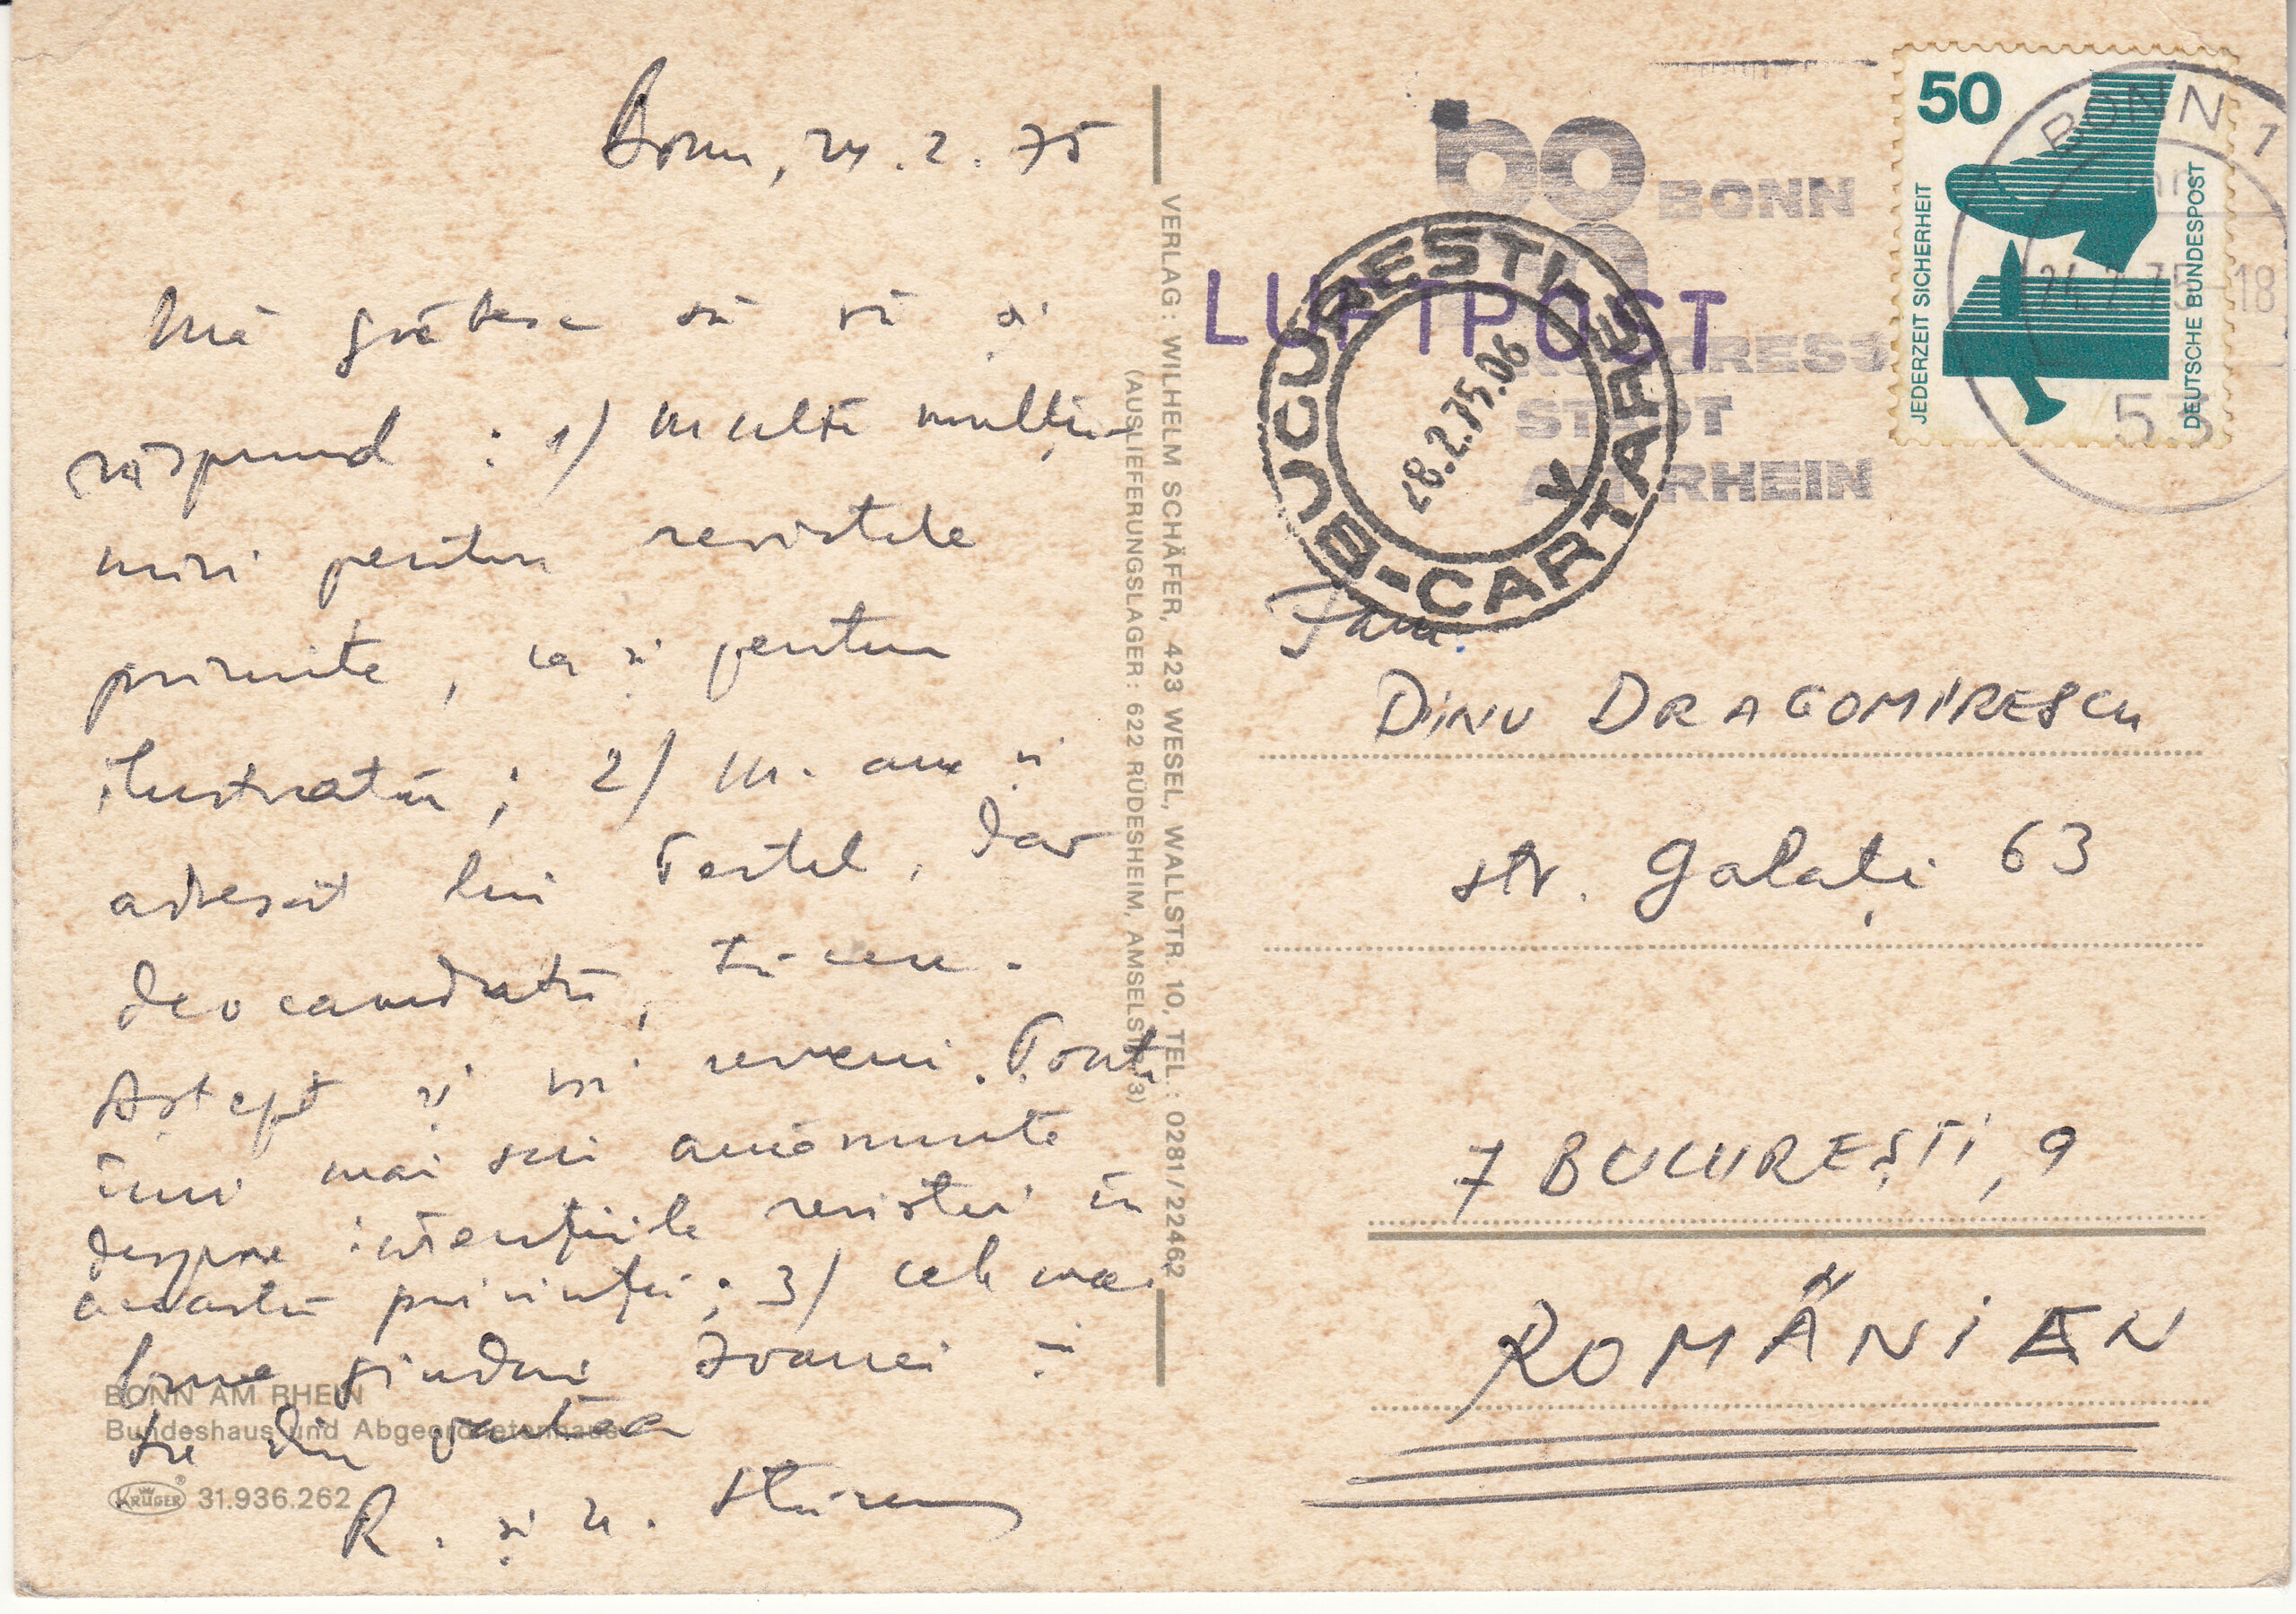 Bonn, 24.2.75
Mă grăbesc să vă și
răspund : 1) multe mulțu-
miri pentru revistele
primite, ca și pentru
ilustrată; 2) m-am și
adresat lui
deocamdată, tăcere.
Aștept și voi reveni. Poate
îmi mai scrii amănunte
despre intențiile revistei în
această privință; 3) cele mai
bune gînduri Ioanei și
ție din partea
R. și
VERLAG: WILHELM SCHÄFER, 423 WESEL, WALLSTR. 10, TEL.: 0281/22462
(AUSLIEFERUNGSLAGER: 622 RÜDESHEIM, AMSELSTR. 3)
BONN AM RHEIN
Bundeshaus und Abgeordnetenhaus
KRÜGER 31.936.262
BONN
KONGRESS
STADT
AM RHEIN
LUFTPOST
BUCUREȘTI CARTARE
28.2.75.06
50
JEDERZEIT SICHERHEIT
DEUTSCHE BUNDESPOST
BONN 1
24.2.75-18
53
Fam.
DINU DRAGOMIRESCU
str. Galați 63
7 BUCUREȘTI, 9
ROMÄNIEN